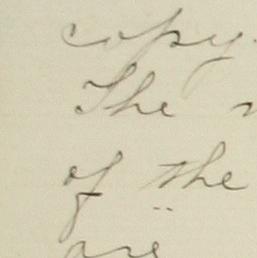 copy.
The
of the
are